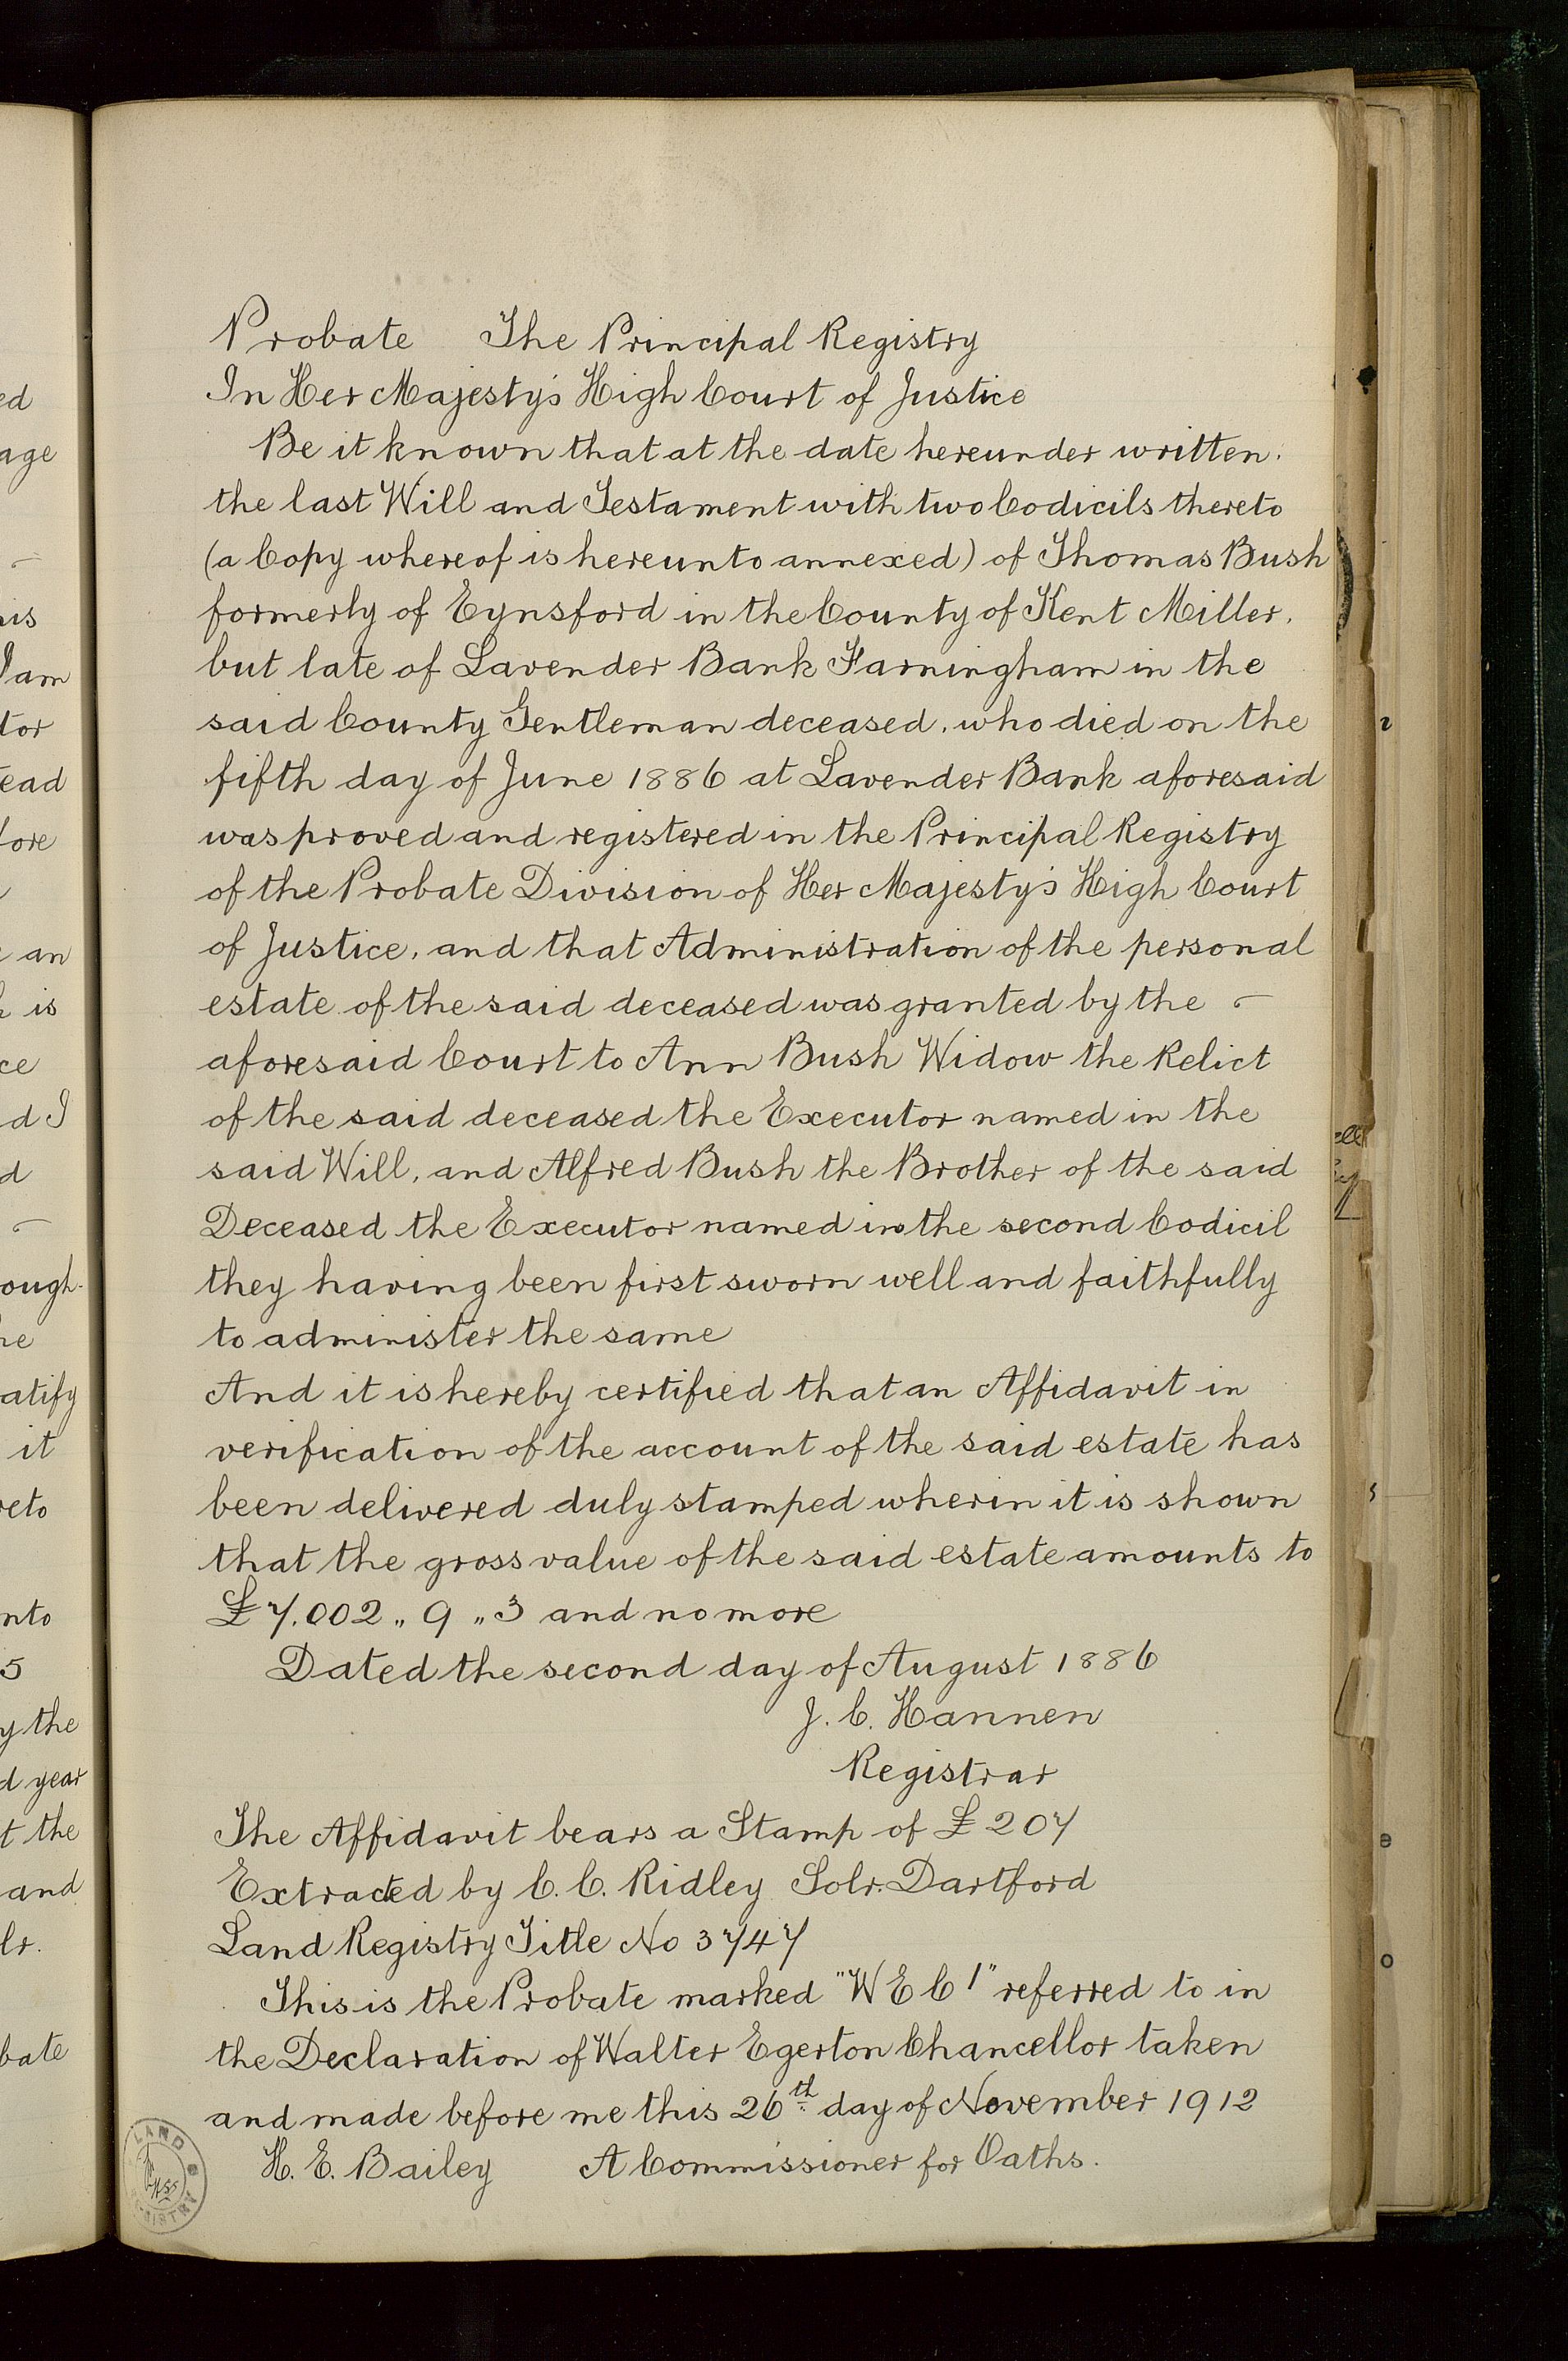 Probate The Principal Registry
In Her Majesty's High Court of Justice
Be it known that at the date hereunder written.
the last Will and Testament with two Codicils thereto
(a Copy whereof is hereunto annexed) of Thomas Bush
formerly of Eynsford in the County of Kent Miller.
but late of Lavender Bank Farningham in the
said County Gentleman deceased. who died on the
fifth day of June 1886 at Lavender Bank aforesaid
was proved and registered in the Principal Registry
of the Probate Division of Her Majesty's High Court
of Justice. and that Administration of the personal
estate of the said deceased was granted by the
aforesaid Court to Ann Bush Widow the Relict
of the said deceased the Executor named in the
said Will. and Alfred Bush the Brother of the said
Deceased the Executor named in the second Codicil
they having been first sworn well and faithfully
to administer the same
And it is hereby certified that an Affidavit in
verification of the account of the said estate has
been delivered duly stamped wherin it is shown
that the gross value of the said estate amounts to
£7.002 „ 9 „ 3 and no more
Dated the second day of August 1886
J. C. Hannen
Registrar
The Affidavit bears a Stamp of £207
Extracted by C. C. Ridley Solr. Dartford
Land Registry Title No 3747
This is the Probate marked "W E C 1" referred to in
the Declaration of Walter Egerton Chancellor taken
and made before me this 26th day of November 1912
H. E. Bailey A Commissioner for Oaths.
LAND